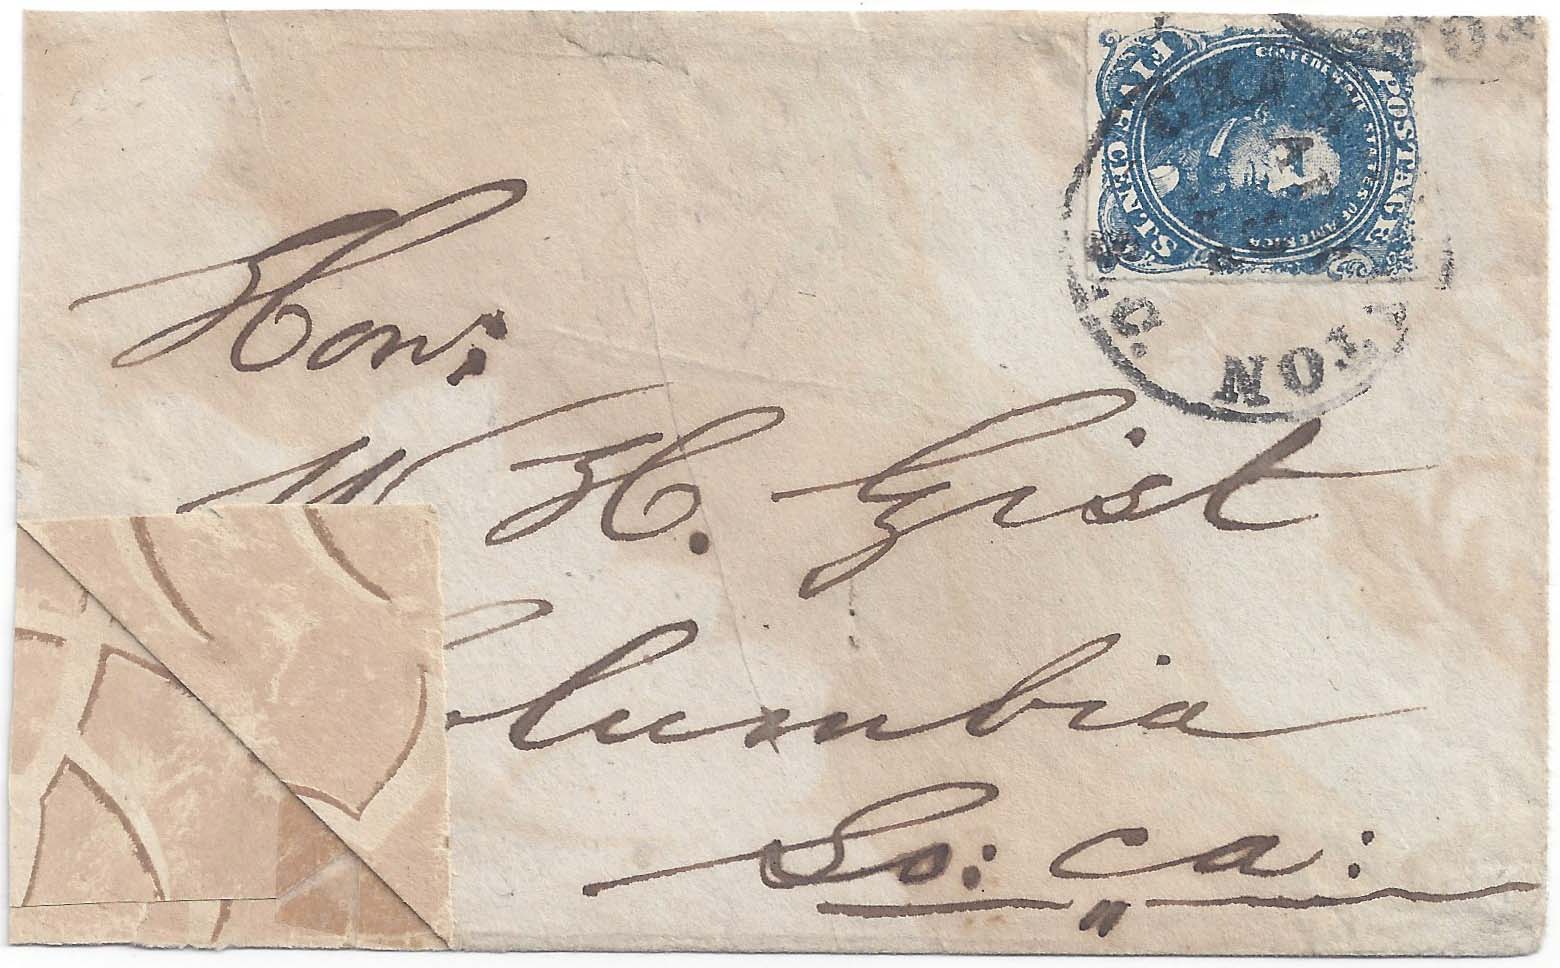 FIVE CENTS
CONFEDERATE STATES OF AMERICA
POSTAGE
TON
S.C.
Hon:
W H. Gist
Columbia
So: Ca: